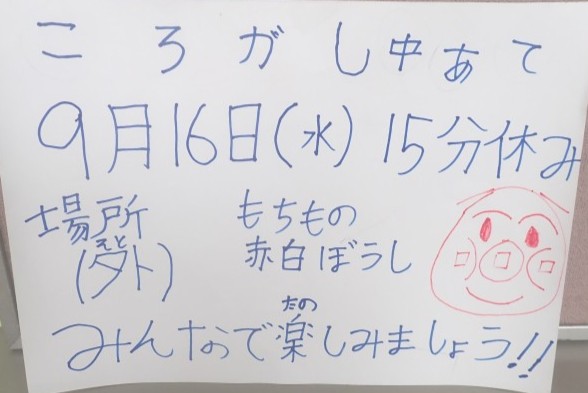 ころがし中あて
9月16日(水) 15分休み
場所
そと
(外)
もちもの
赤白ぼうし
たの
みんなで楽しみましょう!!